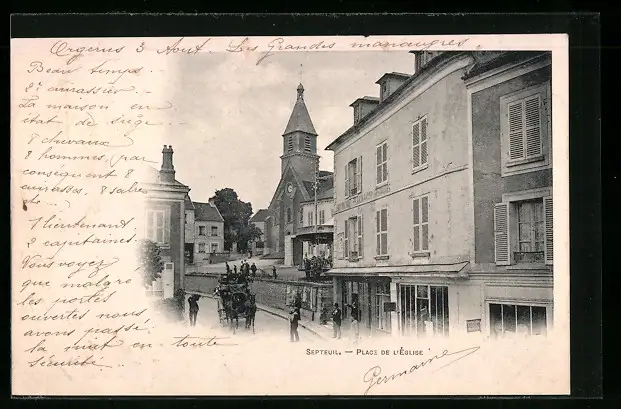 Orgerus 3 Août. Les Grandes manœuvres
Beau temps.
2e cuirassier.
La maison en
état de siège
8 chevaux
8 hommes, par
conséquent 8
cuirasses. 8 sabres
1 lieutenant
2 capitaines.
Vous voyez
que malgré
les portes
ouvertes nous
avons passé
la nuit en toute
sécurité.
SEPTEUIL. — PLACE DE L'ÉGLISE
Germaine